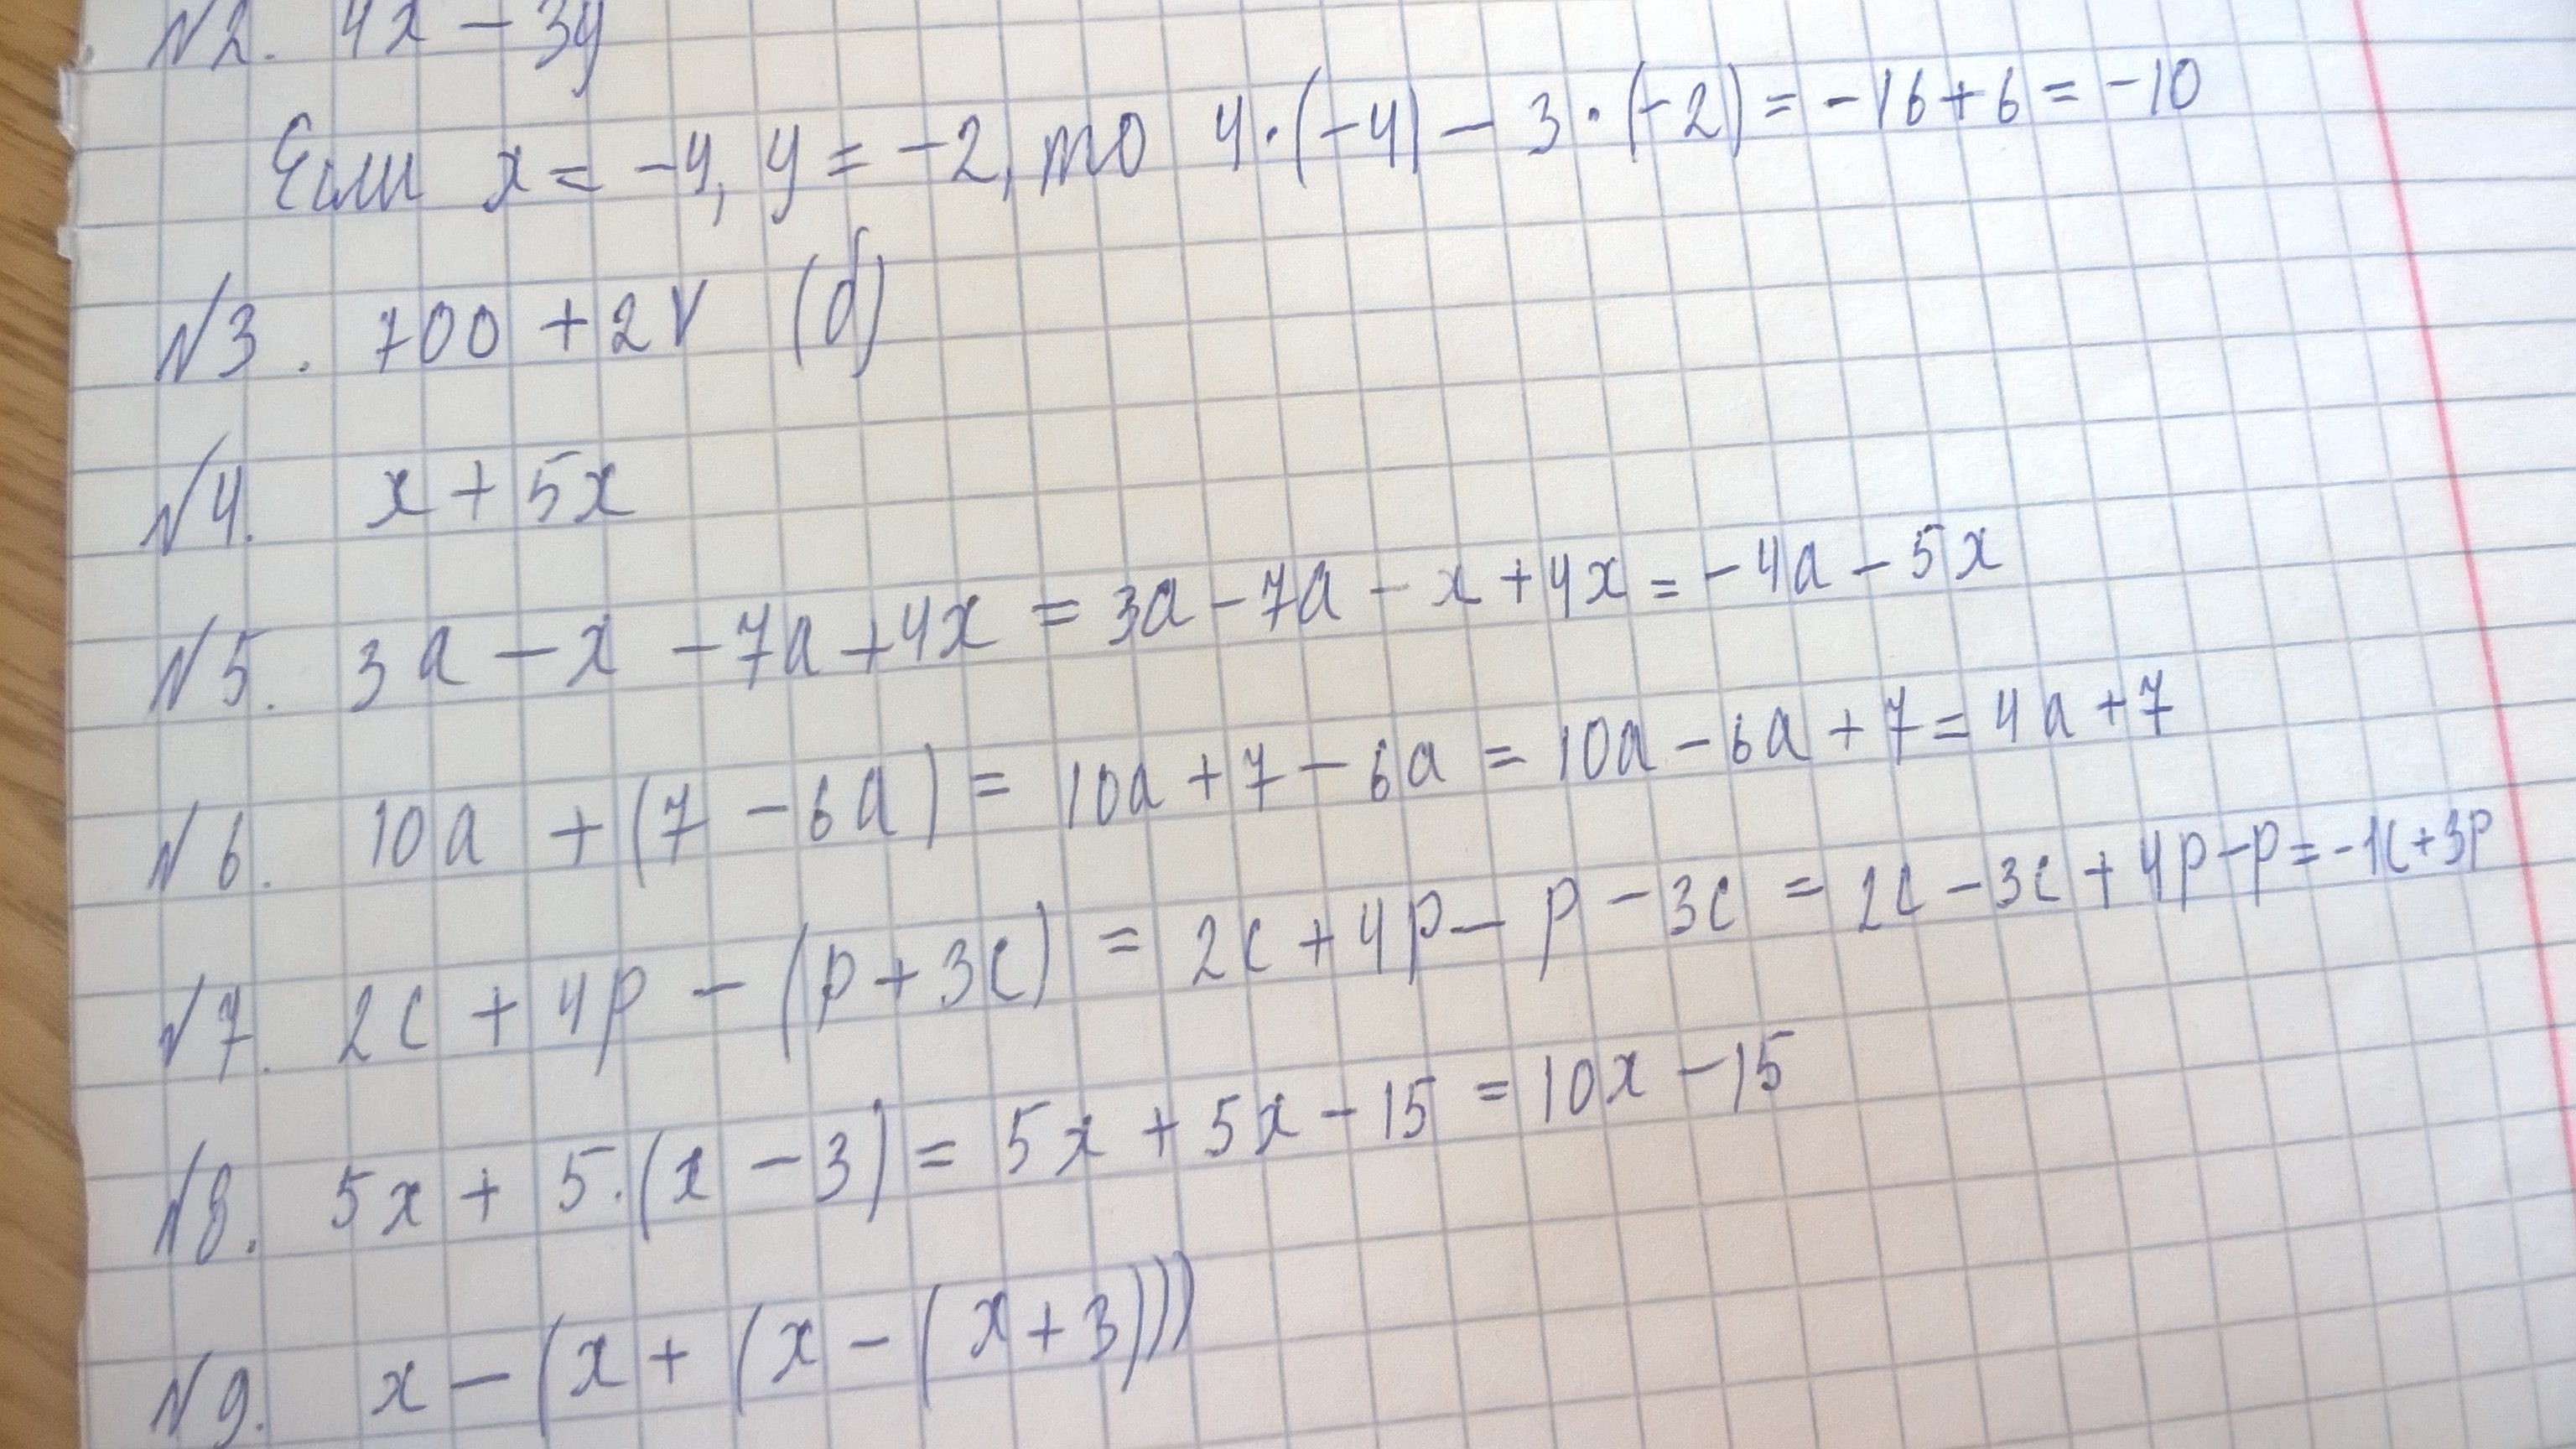 №2. 4x - 3y
Если x = -4, y = -2, то 4·(-4) - 3·(-2) = -16+6 = -10
№3. 700 + 2V (б)
№4. x + 5x
№5. 3a - x - 7a + 4x = 3a - 7a - x + 4x = -4a - 5x
№6. 10a + (7 - 6a) = 10a + 7 - 6a = 10a - 6a + 7 = 4a + 7
№7. 2c + 4p - (p + 3c) = 2c + 4p - p - 3c = 2c - 3c + 4p - p = -1c + 3p
№8. 5x + 5·(x - 3) = 5x + 5x - 15 = 10x - 15
№9. x - (x + (x - (x + 3)))